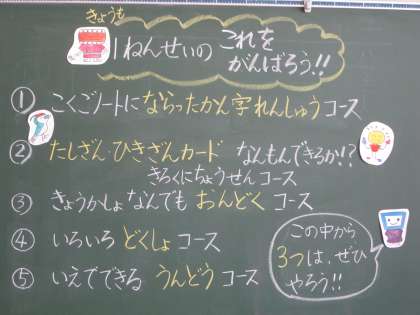 きょうも
1ねんせいの これを
がんばろう!!
① こくごノートにならったかん字れんしゅうコース
② たしざん・ひきざんカード なんもんできるか!?
きろくにちょうせんコース
③ きょうかしょなんでも おんどくコース
④ いろいろ どくしょ コース
⑤ いえでできる うんどうコース
この中から
3つは、ぜひ
やろう!!